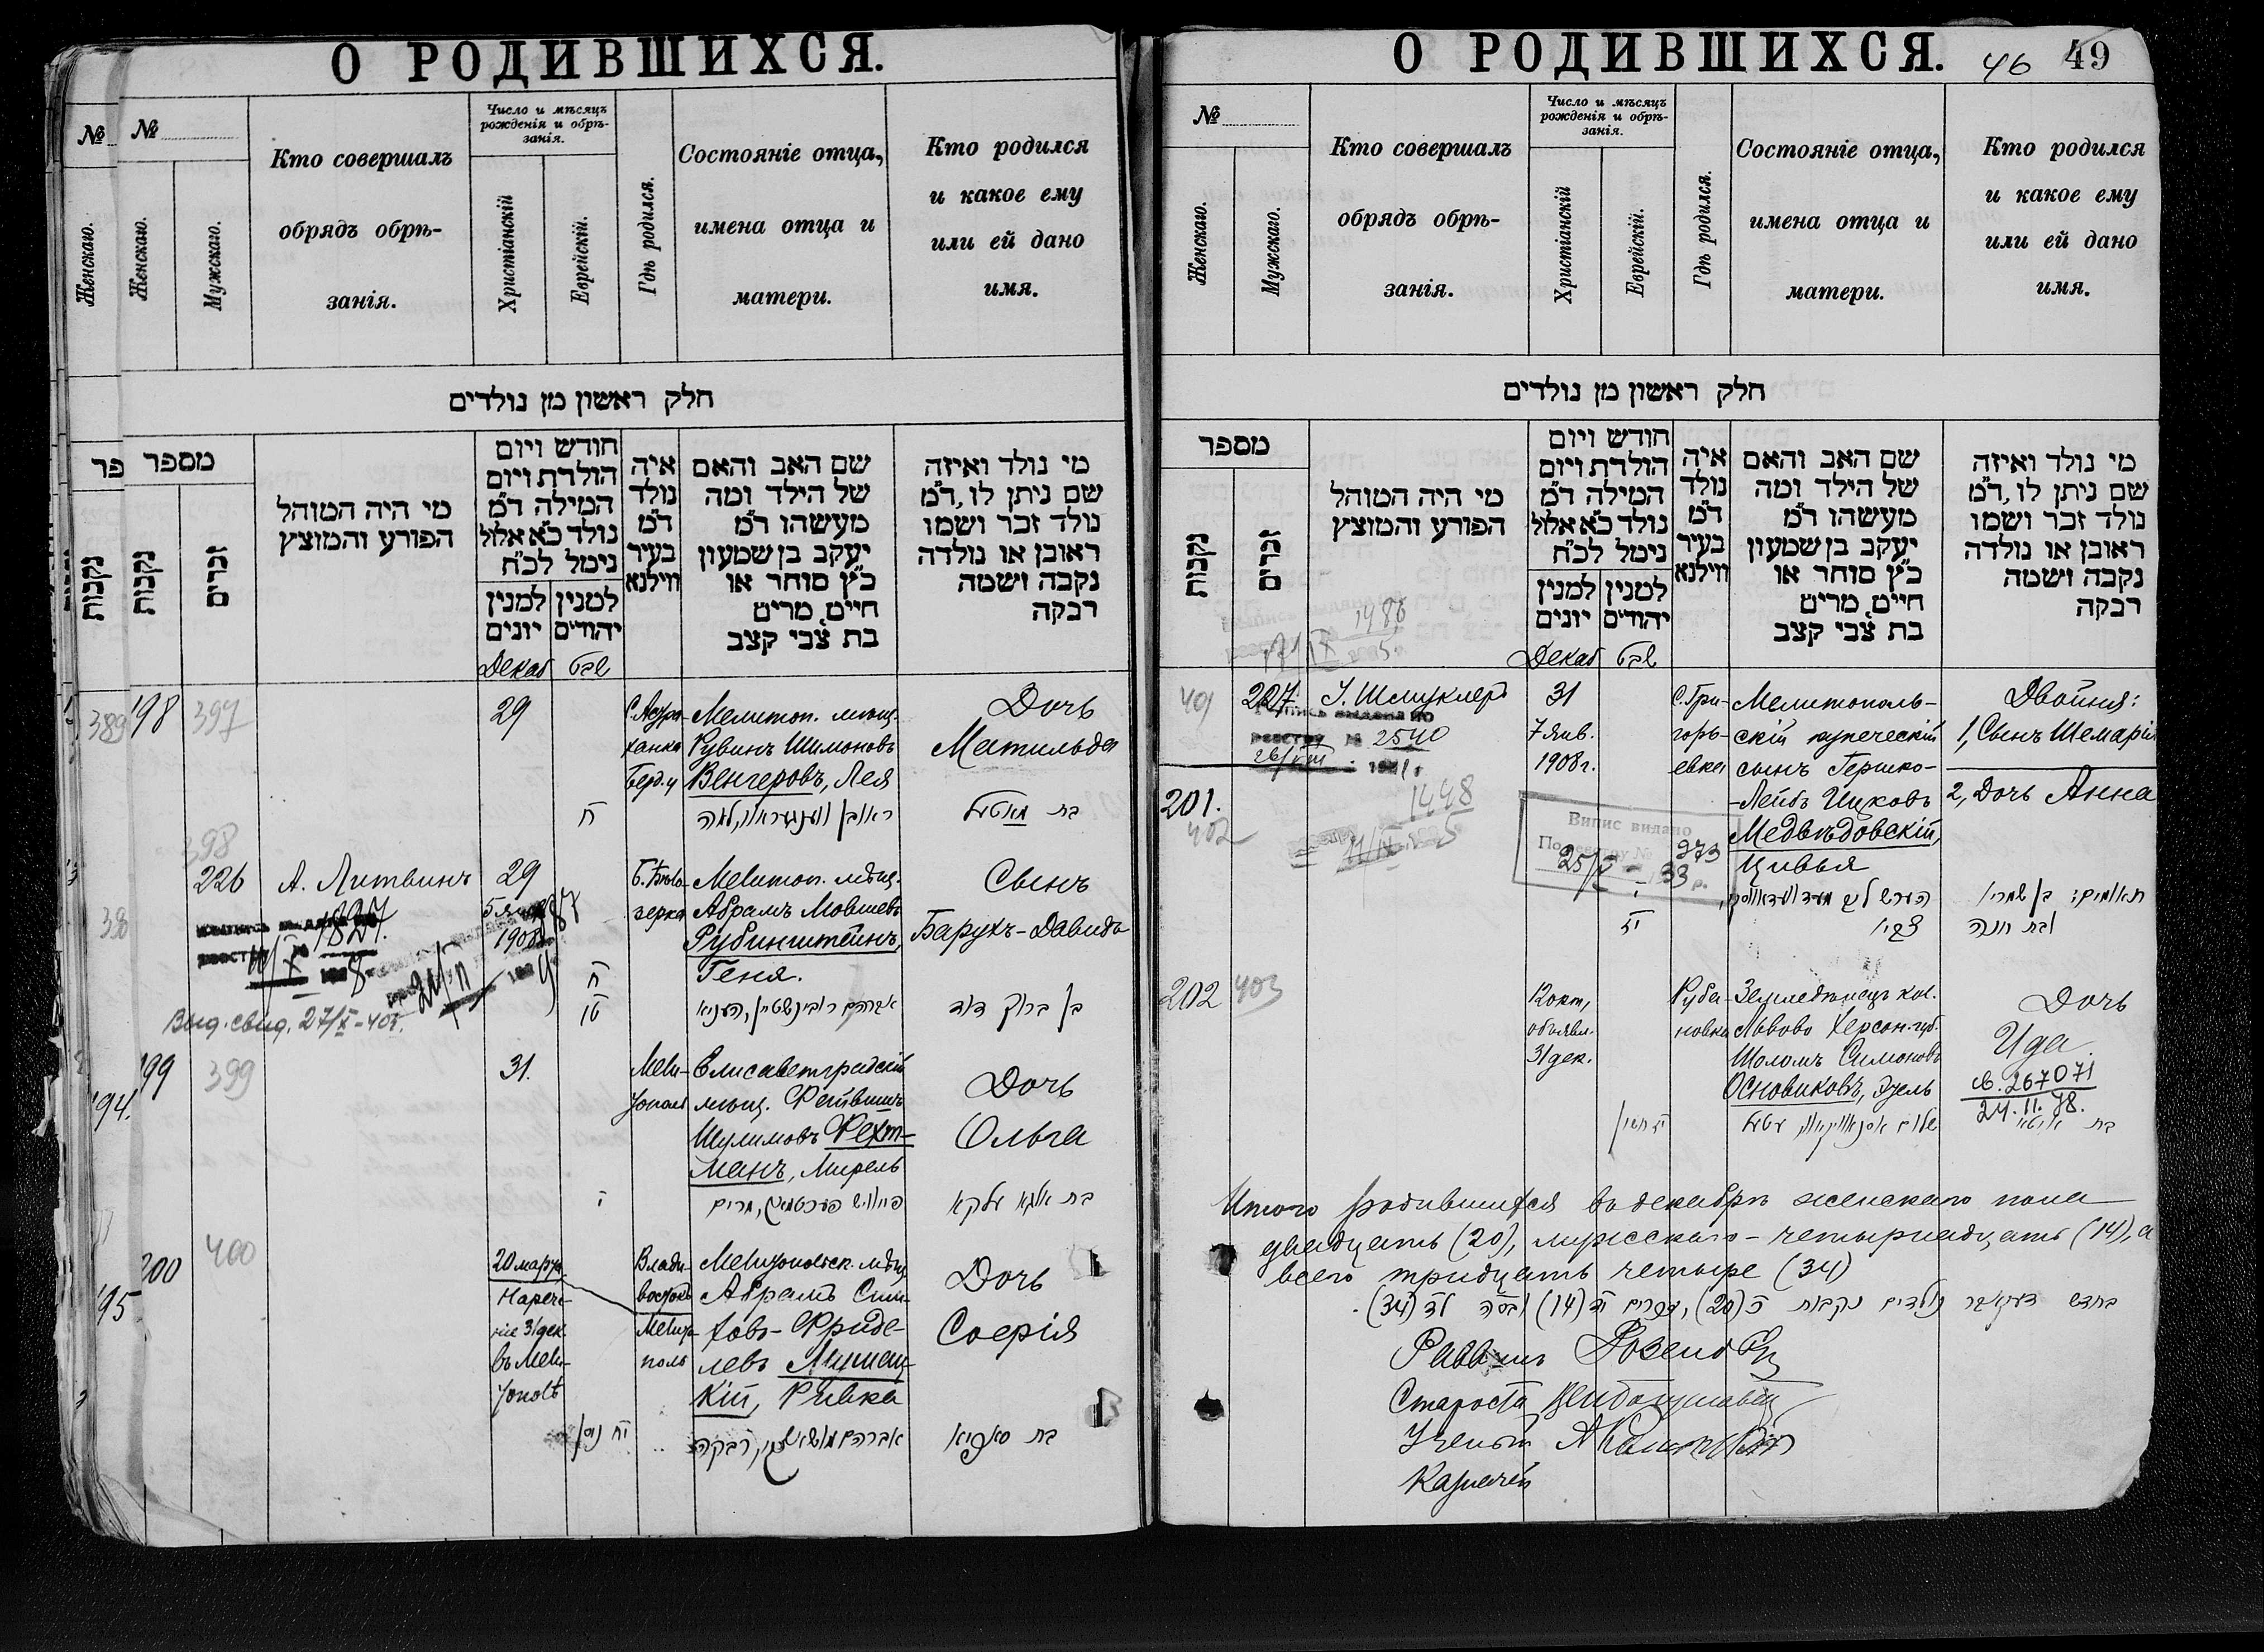 О РОДИВШИХСЯ.
№
№
Женскаго.
Женскаго.
Мужскаго.
Кто совершалъ
обрядъ обрѣ-
занія.
Число и мѣсяцъ
рожденія и обрѣ-
занія.
Христіанскій
Еврейскій.
Гдѣ родился.
Состояніе отца,
имена отца и
матери.
Кто родился
и какое ему
или ей дано
имя.
חלק ראשון מן נולדים
פר
מספר
נקבות
נקבות
זכרים
מי היה המוהל
הפורע והמוצץ
חודש ויום
הולדת ויום
המילה ד״מ
נולד כ״א אלול
נימל לכ״ח
למנין
יונים
למנין
יהודים
איה
נולד
ד״מ
בעיר
ווילנא
שם האב והאם
של הילד ומה
מעשהו ד״מ
יעקב בן שמעון
כ״ץ סוחר או
חיים, מרים
בת צבי קצב
מי נולד ואיזה
שם ניתן לו, ד״מ
נולד זכר ושמו
ראובן או נולדה
נקבה ושמה
רבקה
Декаб
טבת
389
198
397
29
С. Астра-
ханка
Берд. у
Мелитоп. мѣщ.
Рувинъ Шимоновъ
Венгеровъ, Лея
Дочь
Матильда
ח
398
226
А. Литвинъ
29
5 янв
1908
Б. Бѣло-
зерка
Мелитоп. мѣщ.
Абрамъ Мовшевъ
Рубинштейнъ,
Геня.
Сынъ
Барухъ-Давидъ
ח
טו
אברהם רובינשטיין, העניא
בן ברוך דוד
1827
Выд. свид. 27/X-40г.
199
399
31.
Мели-
тополь
Елисаветградскій
мѣщ. Фейвишъ
Шулимовъ Фехт-
манъ, Мирель
Дочь
Ольга
י
194.
200
400
20 марта
Нарече-
ніе 31 дек.
въ Мели-
тополѣ
Влади-
востокъ
Мелито-
поль
Мелитопольск. мѣщ.
Абрамъ Сим-
ховъ-Фриде-
левъ
кій, Ривка
Дочь
Софія
יח ניסן
בת סאפיא
195
О РОДИВШИХСЯ.
46
49
№
Женскаго.
Мужскаго.
Кто совершалъ
обрядъ обрѣ-
занія.
Число и мѣсяцъ
рожденія и обрѣ-
занія.
Христіанскій
Еврейскій.
Гдѣ родился.
Состояніе отца,
имена отца и
матери.
Кто родился
и какое ему
или ей дано
имя.
חלק ראשון מן נולדים
מספר
נקבות
זכרים
מי היה המוהל
הפורע והמוצץ
חודש ויום
הולדת ויום
המילה ד״מ
נולד כ״א אלול
נימל לכ״ח
למנין
יונים
למנין
יהודים
איה
נולד
ד״מ
בעיר
ווילנא
שם האב והאם
של הילד ומה
מעשהו ד״מ
יעקב בן שמעון
כ״ץ סוחר או
חיים, מרים
בת צבי קצב
מי נולד ואיזה
שם ניתן לו, ד״מ
נולד זכר ושמו
ראובן או נולדה
נקבה ושמה
רבקה
Декаб
טבת
401
227.
І. Шмуклеръ
31
7 янв.
1908г.
С. Гри-
горь-
евка
Мелитополь-
скій купеческій
сынъ Гершко-
-Лейбъ Ицковъ
Медвѣдовскій,
Цивья
Двойня:
1, Сынъ Шемарія
2, Дочь Анна
реестру № 2540
201.
402
1498
Випис видано
По реестру № 973
25/X - 33 р.
י
יז
תאומים: בן שמריו
ובת חנה
202
403
12 окт,
объявл.
31 дек.
Руба-
новка
Земледѣлецъ кол.
Львово Херсон. губ.
Шоломъ Симоновъ
Основиковъ, Этель
Дочь
Ида.
св. 267071
24.11.78.
Итого родившихся въ декабрѣ женскаго пола
двадцать (20), мужскаго - четырнадцать (14), а
всего тридцать четыре (34)
בחדש דעקאבר נולדים נקבות כ׳ (20), זכרים יד (14) ובסה לד (34).
Раввинъ
Староста
Ученый
Казначей